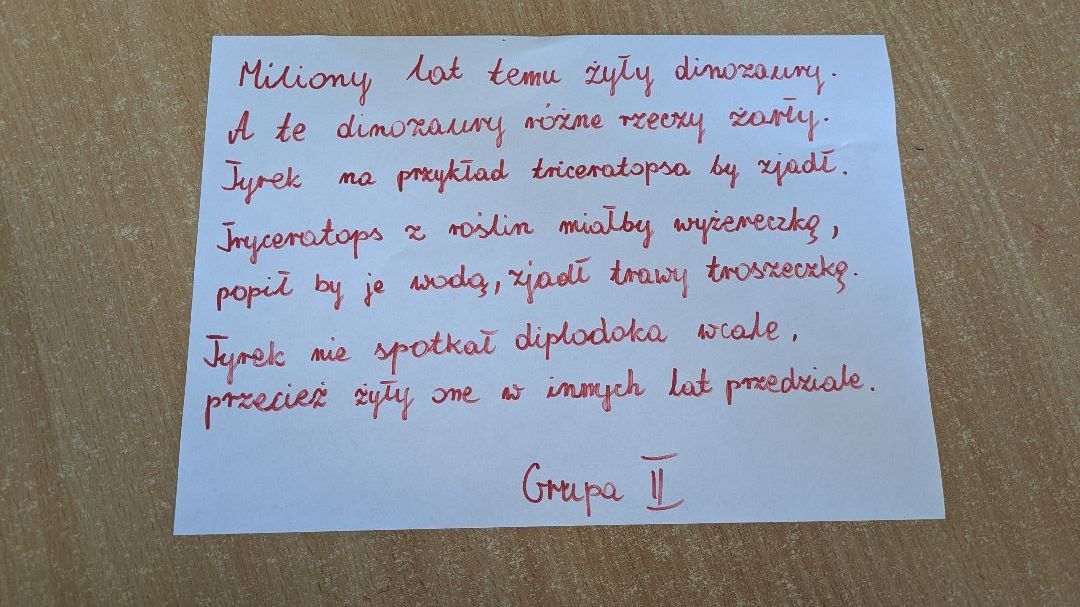 Miliony lat temu żyły dinozaury.
A te dinozaury różne rzeczy żarły.
Tyrek na przykład triceratopsa by zjadł.
Tryceratops z roślin miałby wyżereczkę,
popił by je wodą, zjadł trawy troszeczkę.
Tyrek nie spotkał diplodoka wcale,
przecież żyły one w innych lat przedziale.
Grupa II